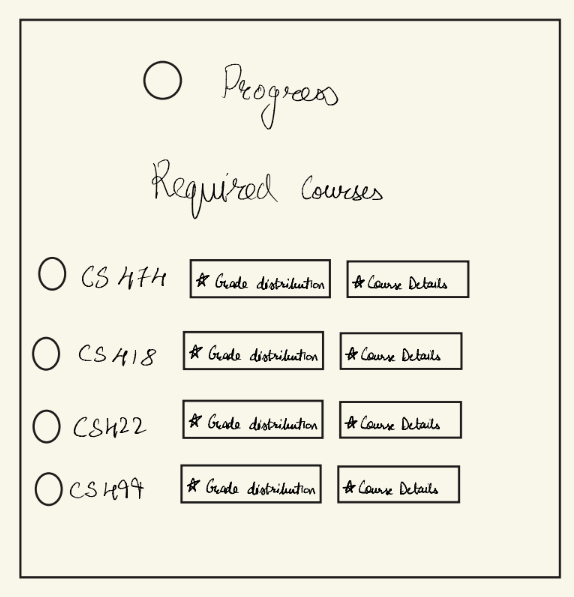 Progress
Required Courses
CS 474 ☆ Grade distribution ☆ Course Details
CS 418 ☆ Grade distribution ☆ Course Details
CS422 ☆ Grade distribution ☆ Course Details
CS 499 ☆ Grade distribution ☆ Course Details